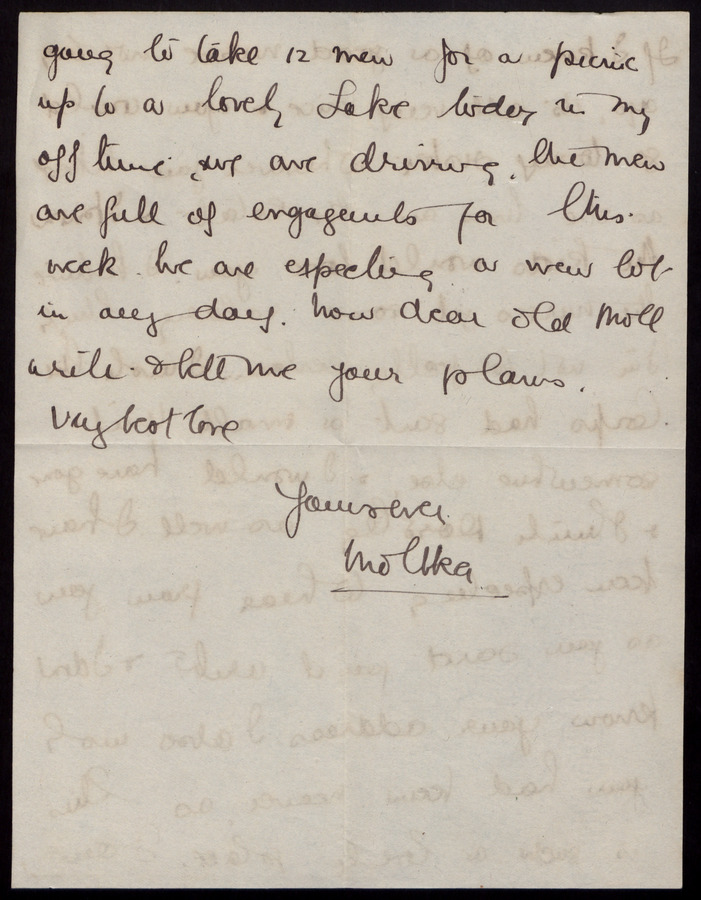 going to take 12 men for a picnic
up to a lovely Lake today in my
off time, we are driving. the men
are full of engagents for this
week. We are expecting a new lot
in any day. Now dear old Moll
write & tell me your plans.
Very best love
Yours ever
Moltka